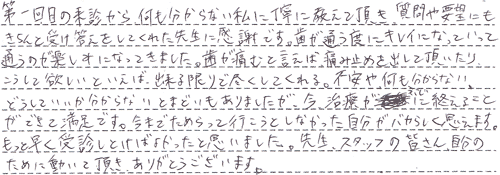 第一回目の来診から、何も分からない私に丁寧に教えて頂き、質問や要望にも
きちんと受け答えをしてくれた先生に感謝です。歯が通う度にキレイになっていって
通うのが楽しみになってきました。歯が痛むと言えば痛み止めを出して頂いたり
こうして欲しいといえば、出来る限りで尽くしてくれる。不安や何も分からない、
どうしていいか分からないとまどいもありましたが、今、治療が無事に終えること
ができて満足です。今までためらって行こうとしなかった自分がバカらしく思えます。
もっと早く受診しとけばよかったと思いました。先生、スタッフの皆さん、自分の
ために動いて頂きありがとうございます。